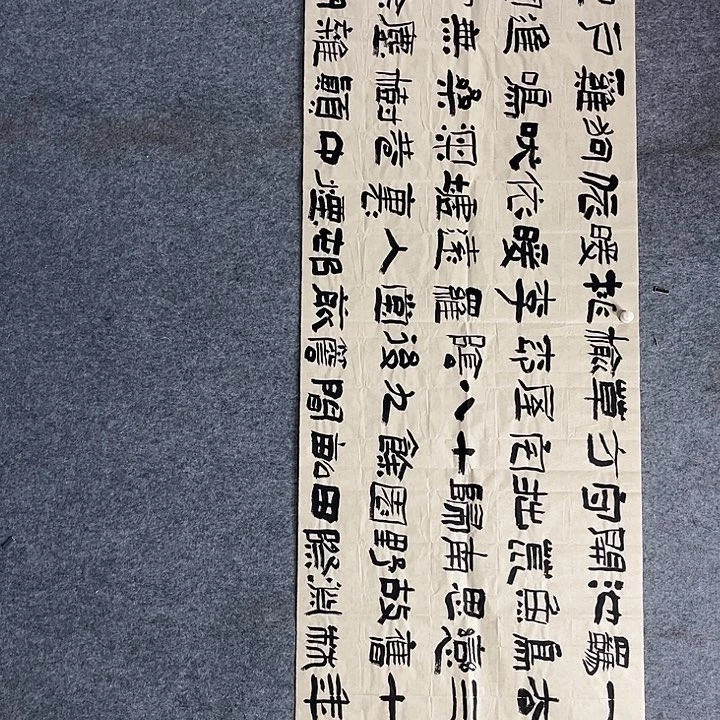 一去三十年
羈鳥戀舊林
池魚思故淵
開荒南野際
守拙歸園田
方宅十餘畝
草屋八九間
榆柳蔭後簷
桃李羅堂前
曖曖遠人村
依依墟里煙
狗吠深巷中
雞鳴桑樹顛
戶庭無塵雜